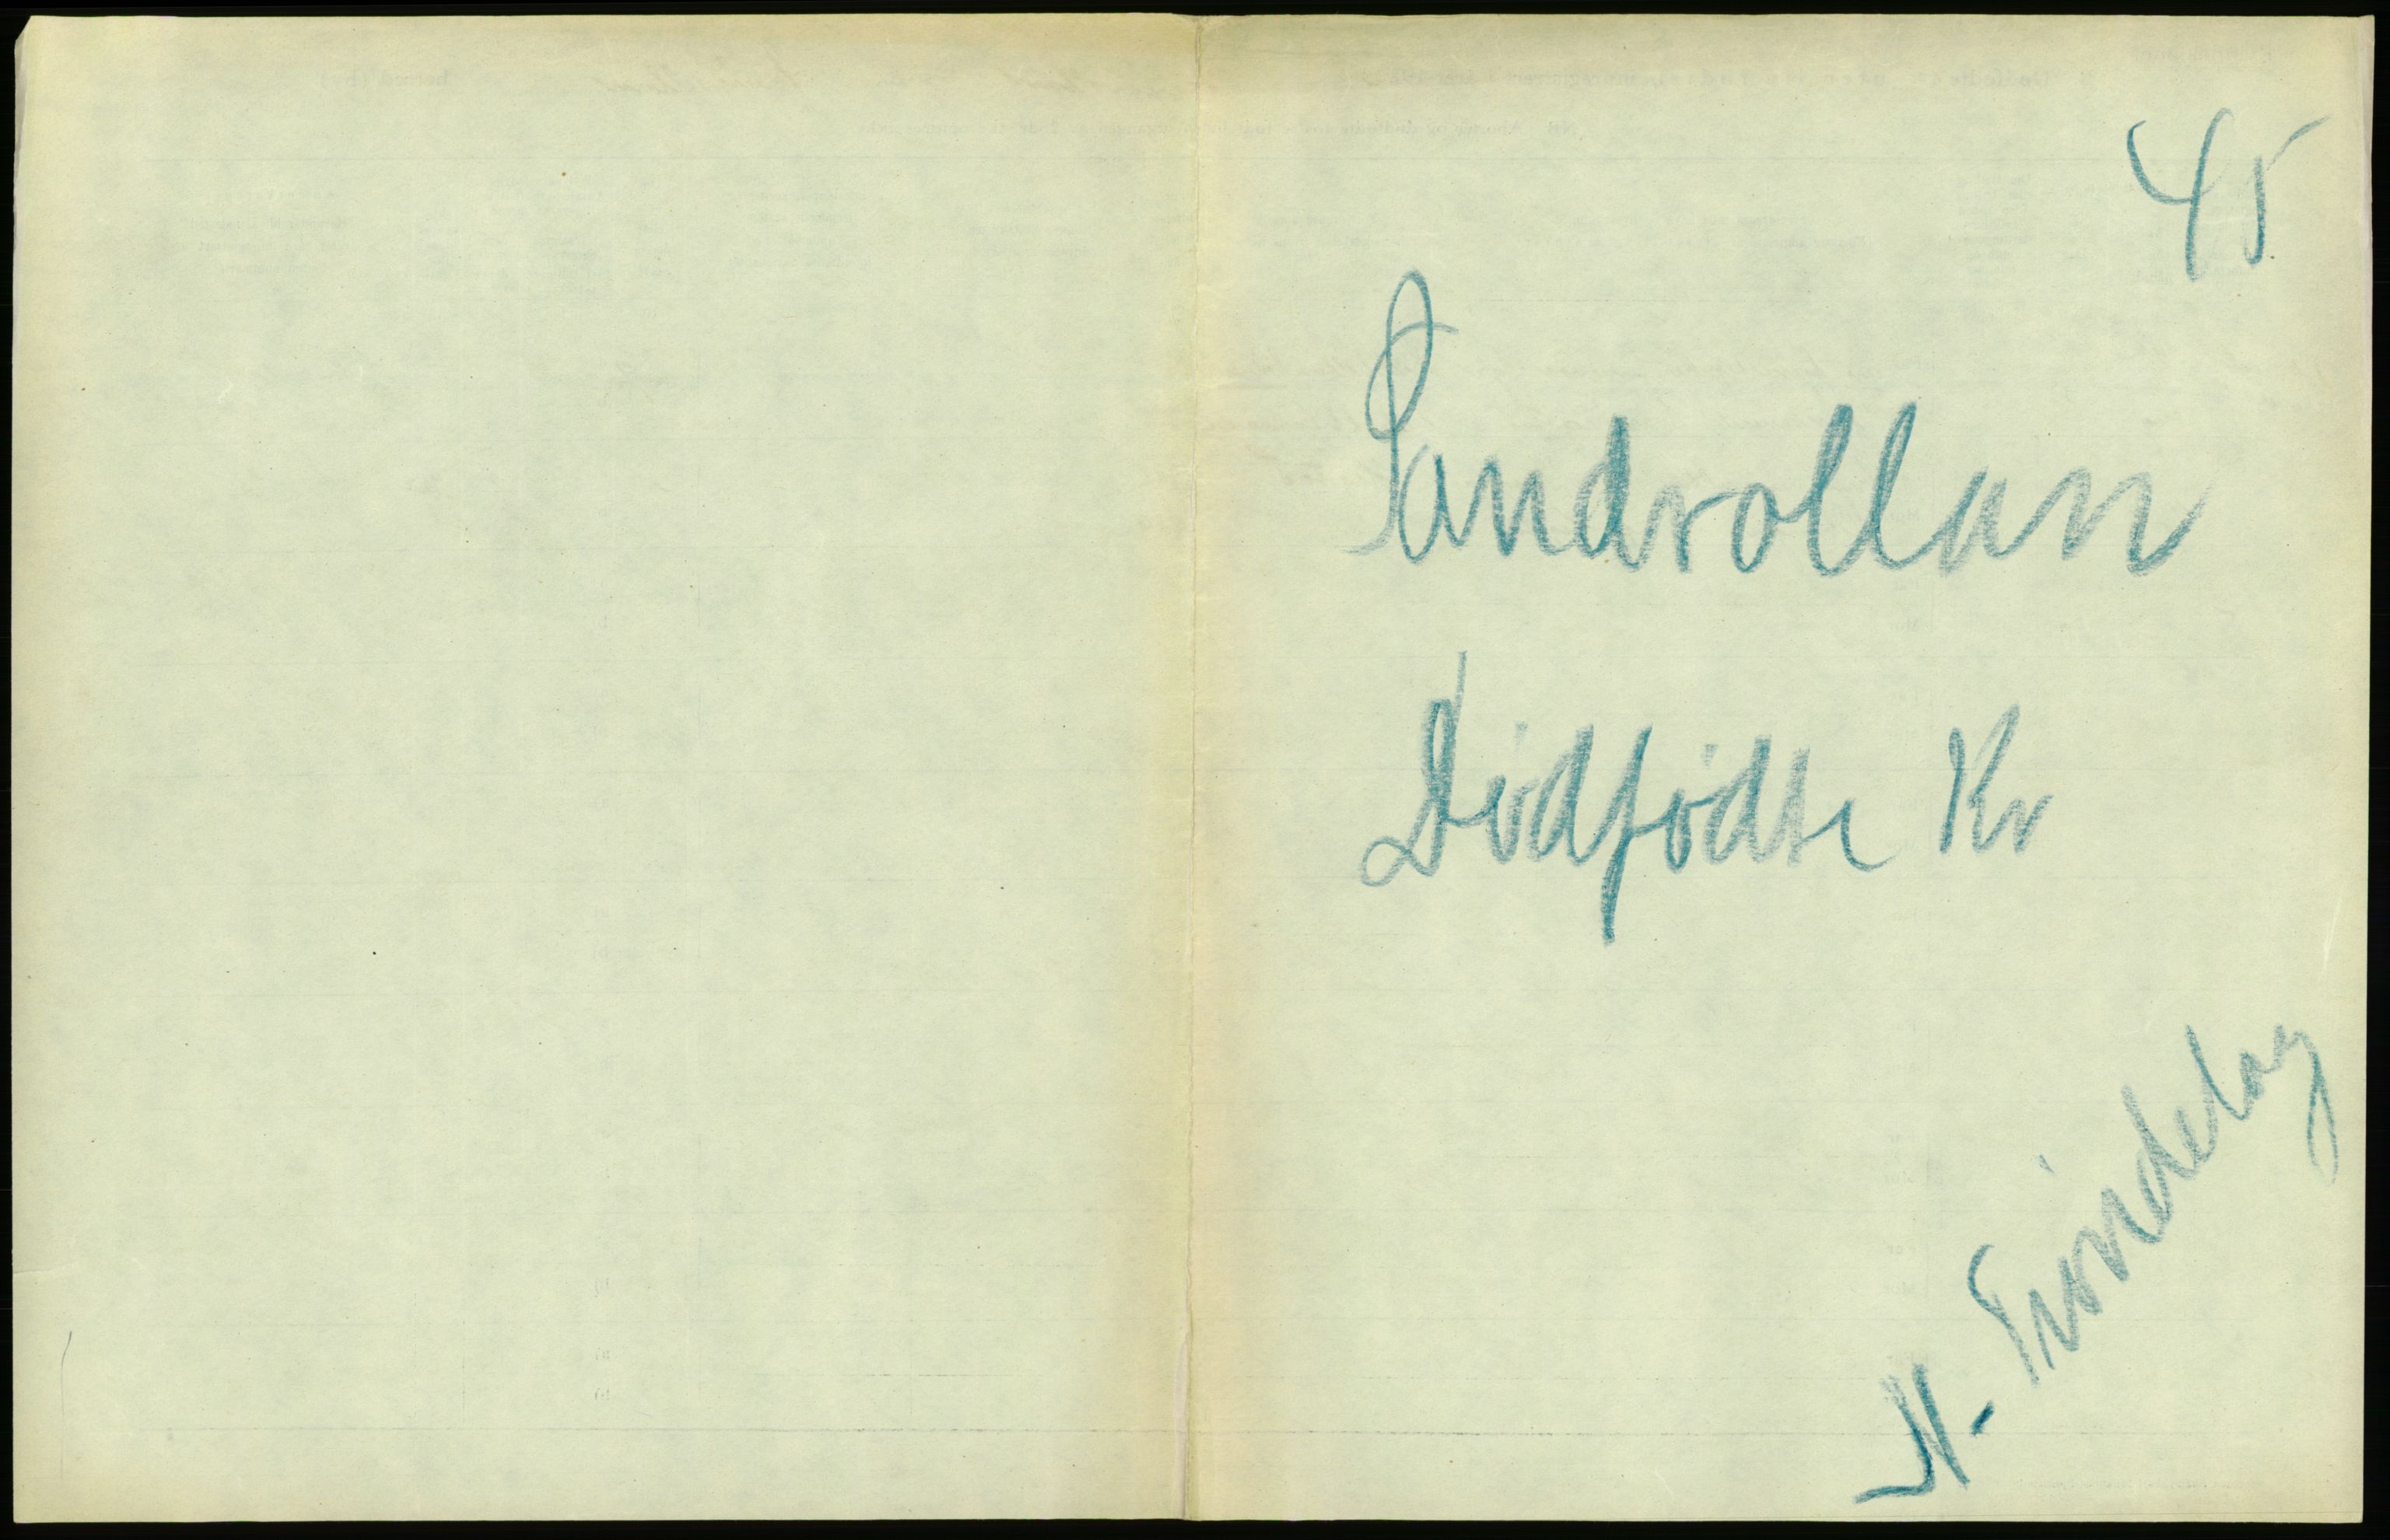 45
Sandvollan
Dødfødte Kv
N. Trøndelag